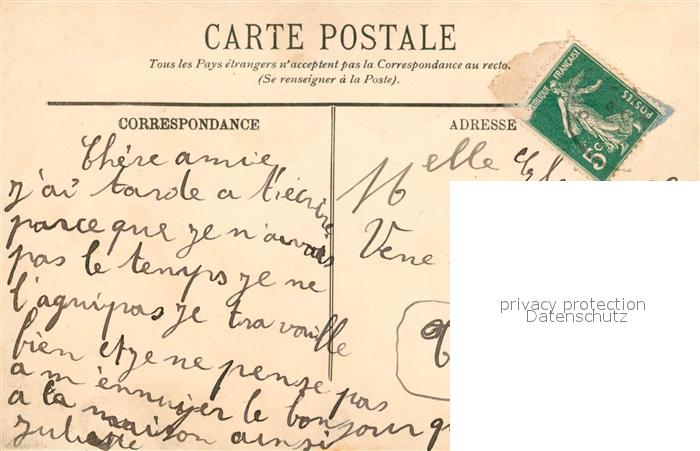 CARTE POSTALE
Tous les Pays étrangers n'acceptent pas la Correspondance au recto.
(Se renseigner à la Poste).
CORRESPONDANCE
ADRESSE
RÉPUBLIQUE FRANÇAISE
POSTES
5c
Chére amie
j'ai tarde a t'écrire
parce que je n'avais
pas le temps je ne
je travaille
bien et je ne pense pas
a m'ennuyer le bonjour
a la maison ainsi
Juliette
Melle
privacy protection
Datenschutz